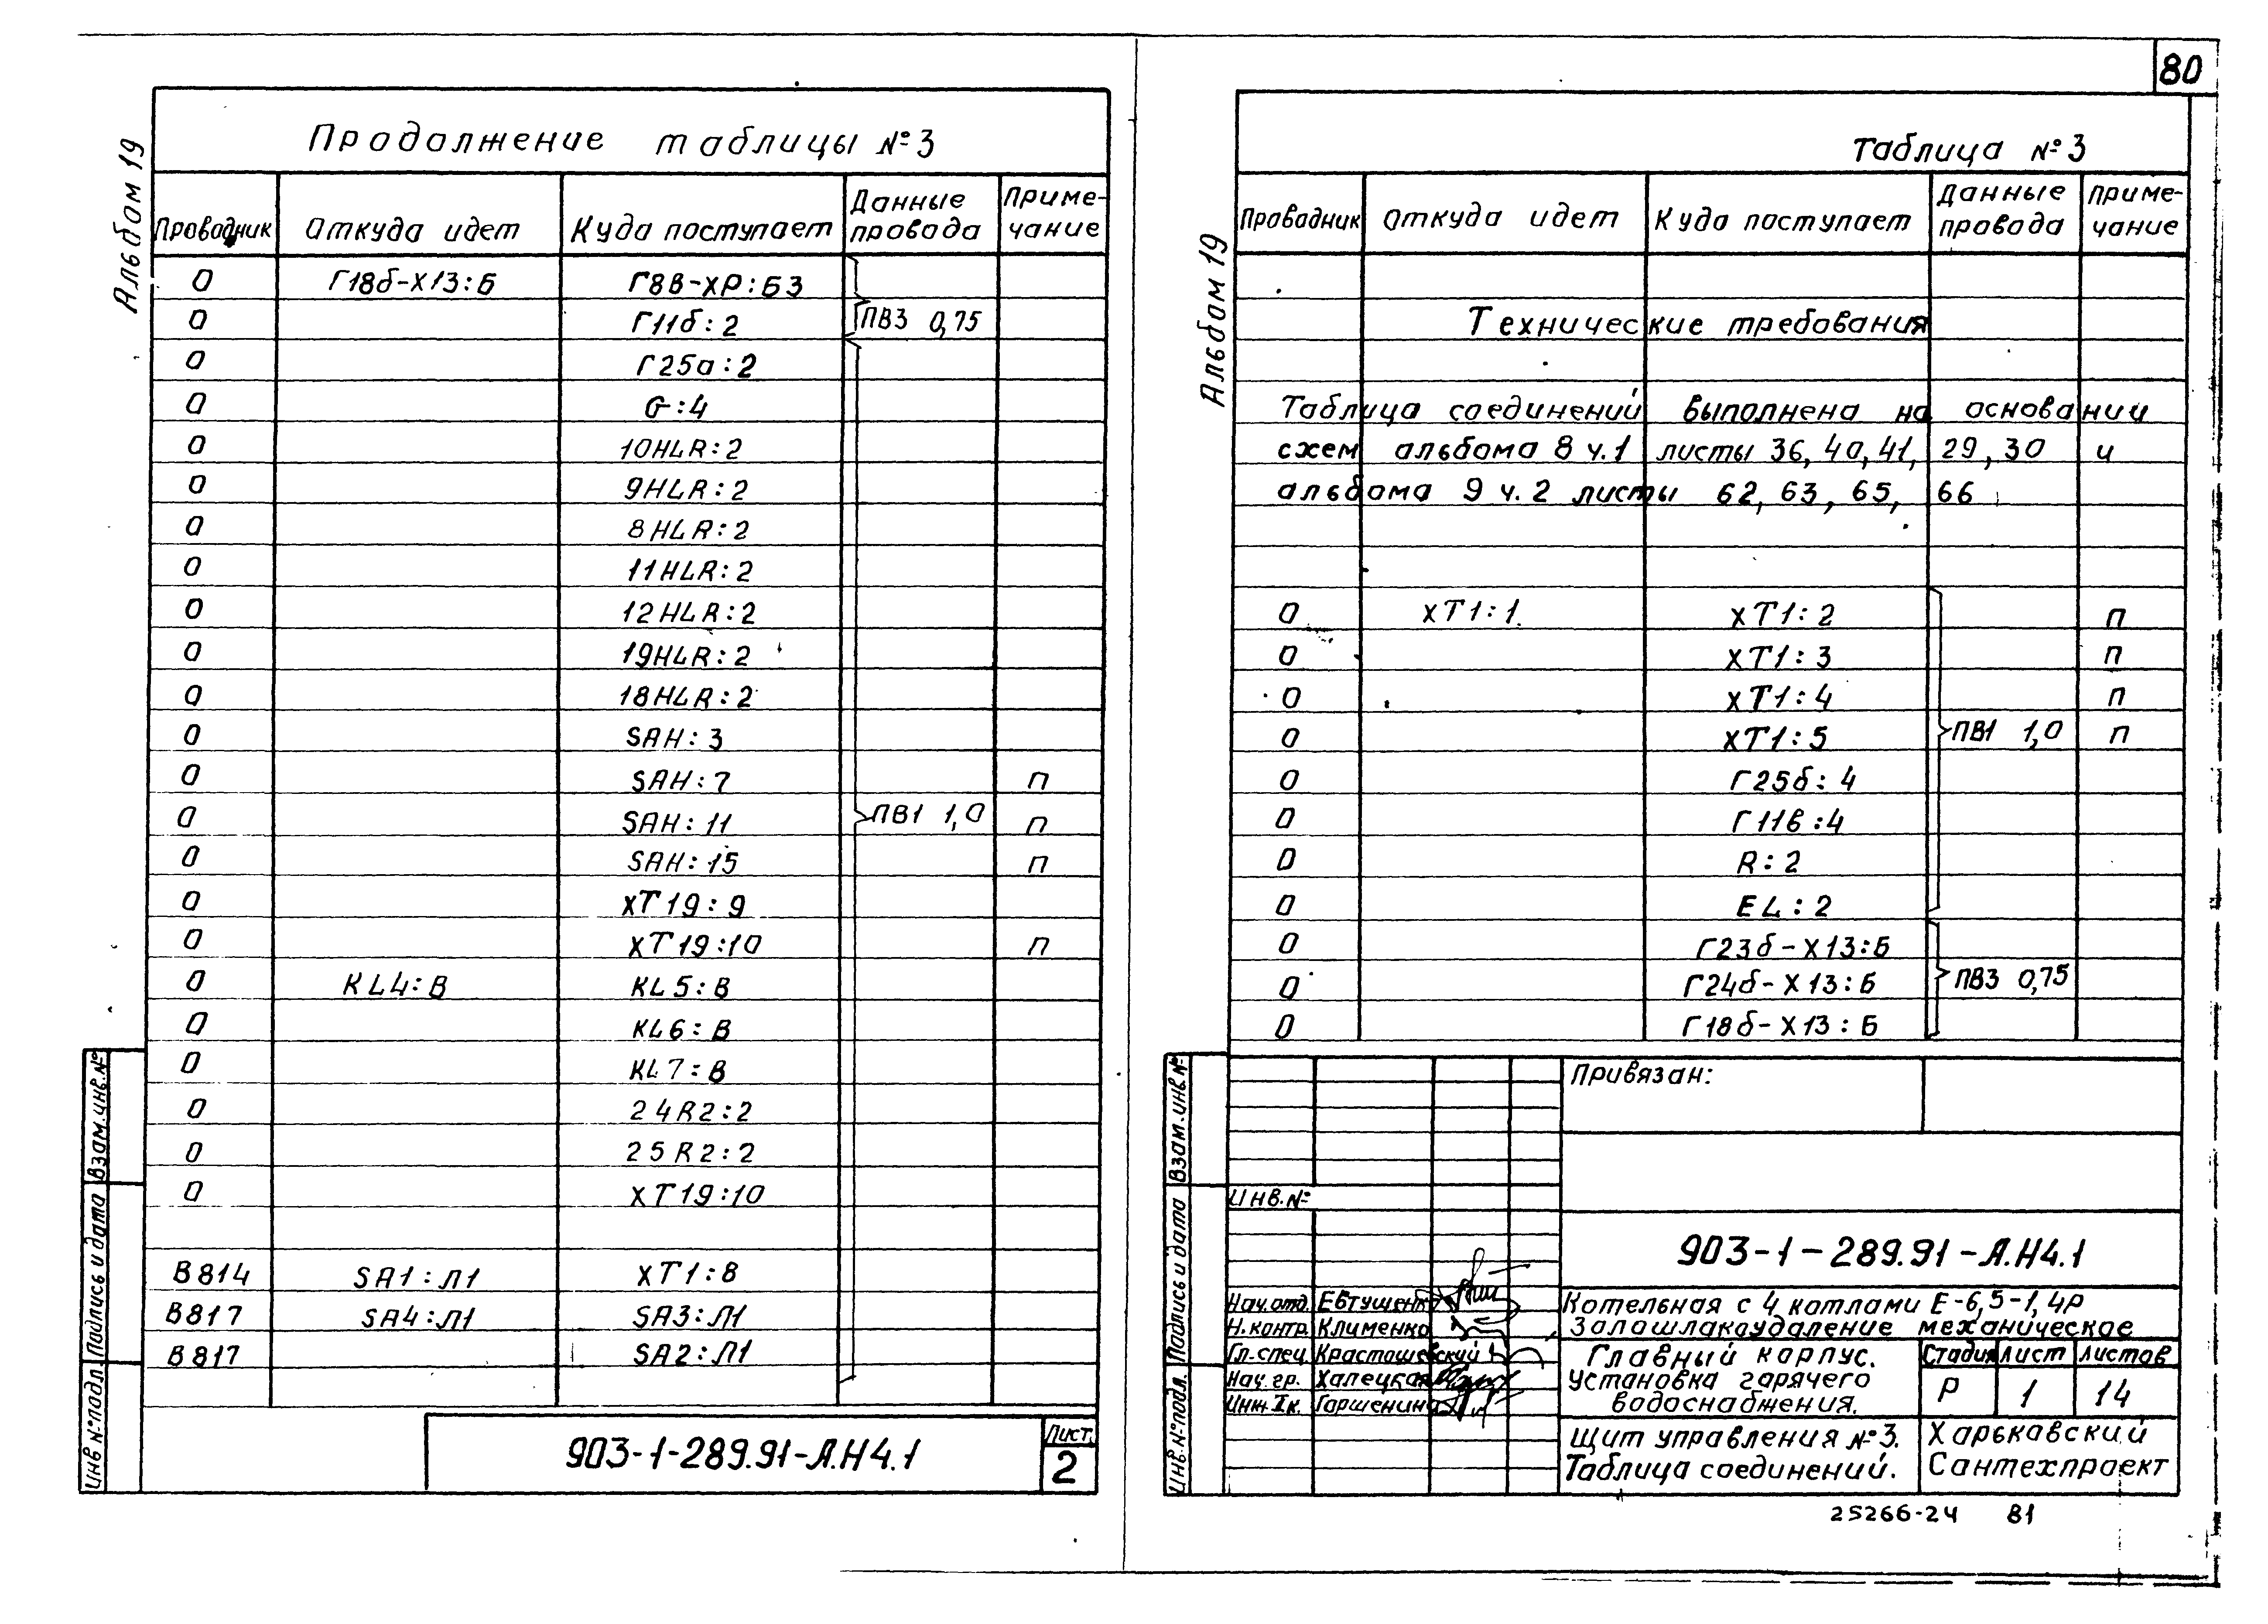 80
Альбом 19
Продолжение таблицы №3
Проводник Откуда идет Куда поступает Данные провода Приме-чание
0 Г18б-Х13:Б Г8В-ХР:Б3
0 Г11б:2 ПВ3 0,75
0 Г25а:2
0 G:4
0 10HLR:2
0 9HLR:2
0 8HLR:2
0 11HLR:2
0 12HLR:2
0 19HLR:2
0 18HLR:2
0 SAH:3
0 SAH:7 п
0 SAH:11 ПВ1 1,0 п
0 SAH:15 п
0 XT19:9
0 XT19:10 п
0 KL4:B KL5:B
0 KL6:B
0 KL7:B
0 24R2:2
0 25R2:2
0 XT19:10
В814 SA1:Л1 XT1:8
В817 SA4:Л1 SA3:Л1
В817 SA2:Л1
Инв.№подл. Подпись и дата Взам.инв.№
903-1-289.91-А.Н4.1
Лист.
2
Альбом 19
Таблица №3
Проводник Откуда идет Куда поступает Данные провода Приме-чание
Технические требования
Таблица соединений выполнена на основании
схем альбома 8 ч.1 листы 36, 40, 41, 29, 30 и
альбома 9 ч.2 листы 62, 63, 65, 66
0 XT1:1 XT1:2 п
0 XT1:3 п
0 XT1:4 п
0 XT1:5 ПВ1 1,0 п
0 Г25б:4
0 Г11в:4
0 R:2
0 EL:2
0 Г23б-Х13:Б
0 Г24б-Х13:Б ПВ3 0,75
0 Г18б-Х13:Б
Инв.№подл. Подпись и дата Взам.инв.№
Привязан:
Инв.№
903-1-289.91-А.Н4.1
Нач.отд. Евтушенко
Н.контр. Клименко
Гл.спец. Красташевский
Нач.гр. Халецкая
Инж.Iк. Гаршенина
Котельная с 4 котлами Е-6,5-1,4Р
Золошлакоудаление механическое
Главный корпус.
Установка горячего
водоснабжения.
Стадия Лист Листов
Р 1 14
Щит управления №3.
Таблица соединений.
Харьковский
Сантехпроект
25266-24 81